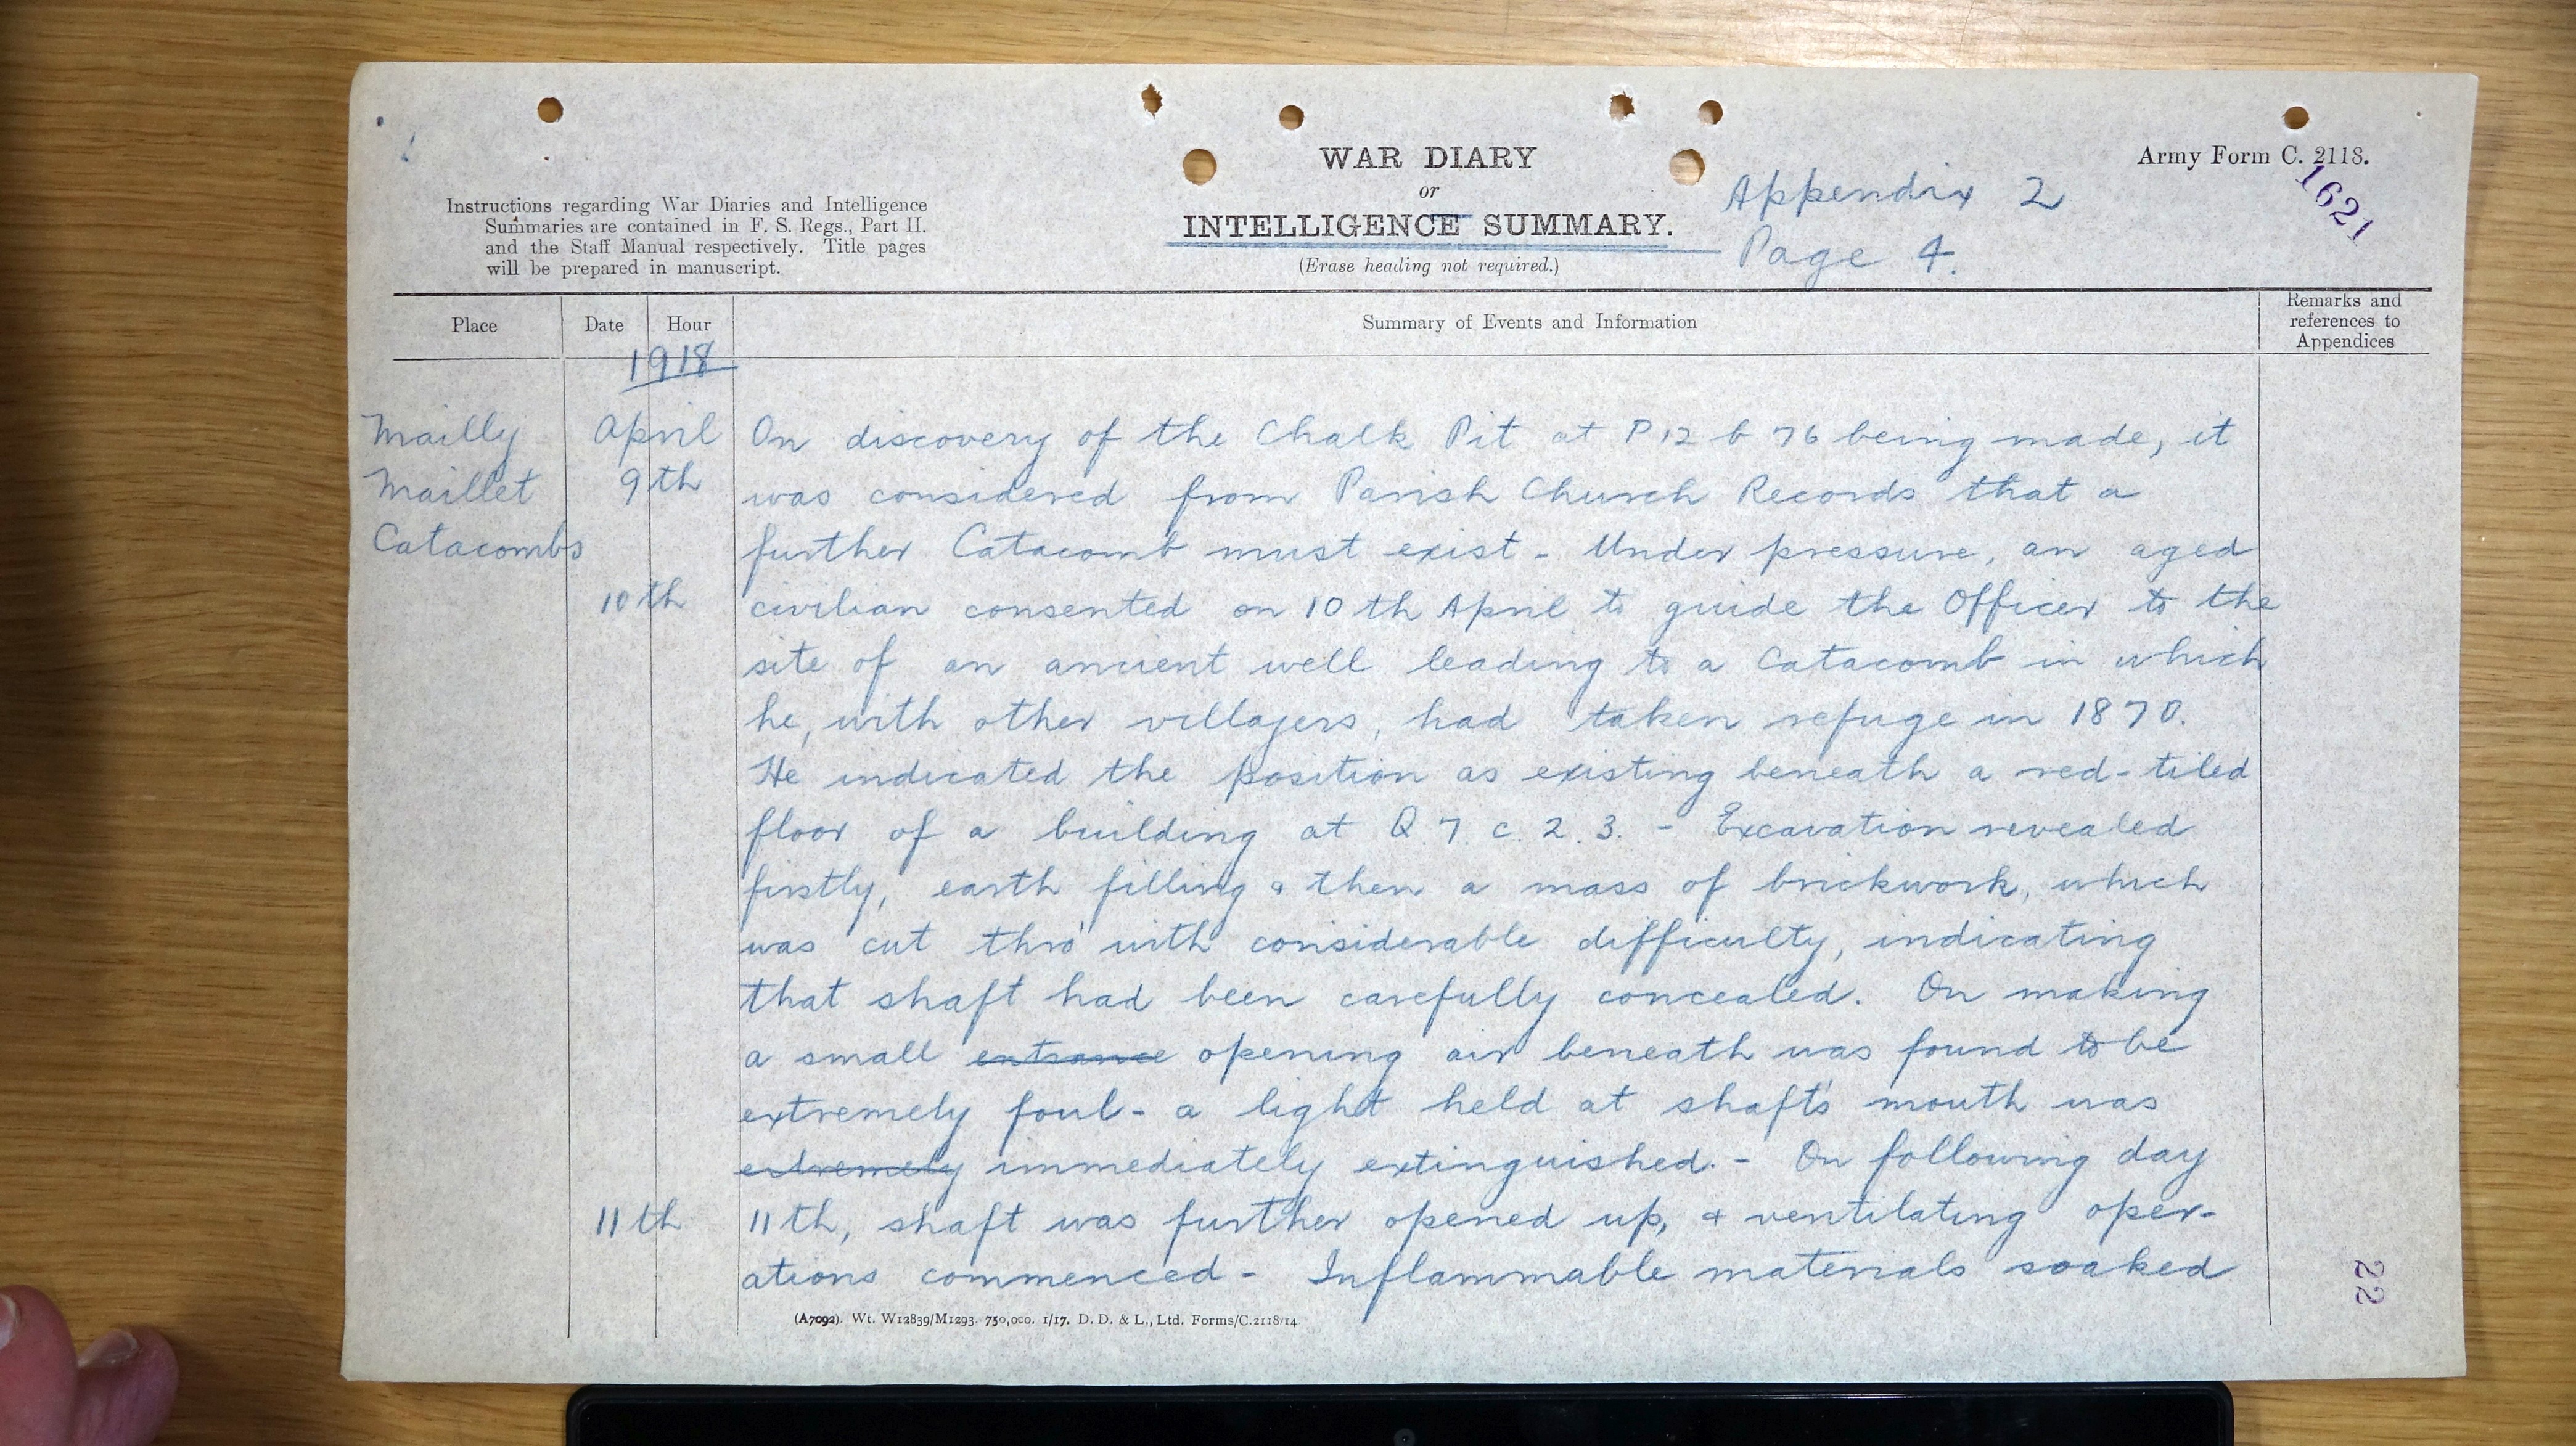 WAR DIARY
or
INTELLIGENCE SUMMARY.
(Erase heading not required.)
Army Form C. 2118.
1621
Appendix 2
Page 4.
Instructions regarding War Diaries and Intelligence
Summaries are contained in F. S. Regs., Part II.
and the Staff Manual respectively. Title pages
will be prepared in manuscript.
Place Date Hour Summary of Events and Information Remarks and
references to
Appendices
1918
Mailly April On discovery of the Chalk Pit at P 12 b 76 being made, it
Maillet 9th was considered from Parish Church Records that a
Catacombs further Catacomb must exist - Under pressure, an aged
10th civilian consented on 10th April to guide the Officer to the
site of an ancient well leading to a Catacomb in which
he, with other villagers, had taken refuge in 1870.
He indicated the position as existing beneath a red-tiled
floor of a building at Q. 7. c. 2. 3. - Excavation revealed
firstly, earth filling & then a mass of brickwork, which
was cut thro' with considerable difficulty, indicating
that shaft had been carefully concealed. On making
a small entrance opening air beneath was found to be
extremely foul - a light held at shaft's mouth was
extremely immediately extinguished. - On following day
11th 11th, shaft was further opened up, & ventilating oper-
ations commenced - Inflammable materials soaked
(A7092). Wt. W12839/M1293. 750,000. 1/17. D. D. & L., Ltd. Forms/C.2118/14
22